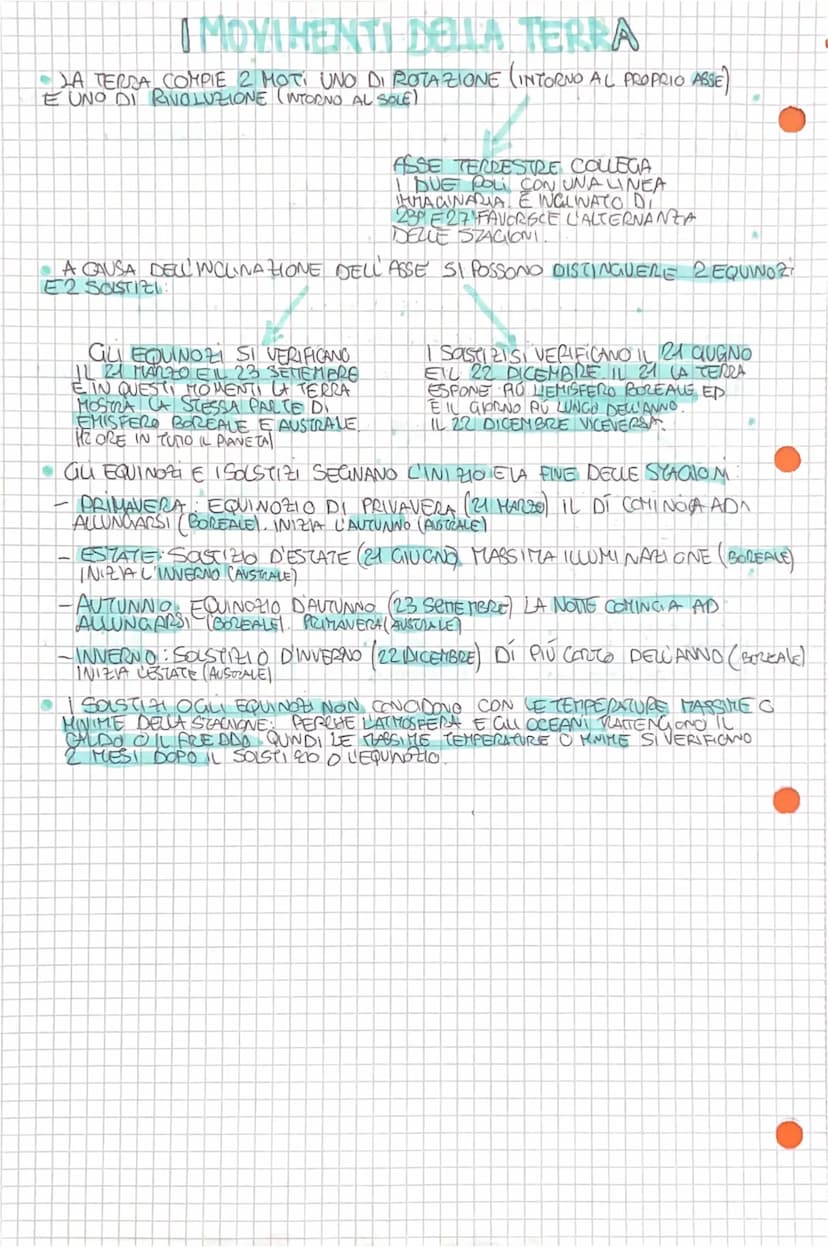 I MOVIMENTI DELLA TERRA
• LA TERRA COMPIE 2 MOTI UNO DI ROTAZIONE (INTORNO AL PROPRIO ASSE)
E UNO DI RIVOLUZIONE (INTORNO AL SOLE)
ASSE TERRESTRE COLLEGA
I DUE POLI CON UNA LINEA
IMMAGINARIA. È INCLINATO DI
23° E 27' FAVORISCE L'ALTERNANZA
DELLE STAGIONI.
• A CAUSA DELL'INCLINAZIONE DELL'ASSE SI POSSONO DISTINGUERE 2 EQUINOZI
E 2 SOLSTIZI:
GLI EQUINOZI SI VERIFICANO
IL 21 MARZO E IL 23 SETTEMBRE
E IN QUESTI MOMENTI LA TERRA
MOSTRA LA STESSA PARTE DI
EMISFERO BOREALE E AUSTRALE.
(12 ORE IN TUTTO IL PIANETA)
I SOLSTIZI SI VERIFICANO IL 21 GIUGNO
E IL 22 DICEMBRE IL 21 LA TERRA
ESPONE PIÙ L'EMISFERO BOREALE ED
È IL GIORNO PIÙ LUNGO DELL'ANNO.
IL 22 DICEMBRE VICEVERSA.
• GLI EQUINOZI E I SOLSTIZI SEGNANO L'INIZIO E LA FINE DELLE STAGIONI:
- PRIMAVERA: EQUINOZIO DI PRIVAVERA (21 MARZO) IL DÌ COMINCIA AD
ALLUNGARSI (BOREALE). INIZIA L'AUTUNNO (AUSTRALE)
- ESTATE: SOLSTIZIO D'ESTATE (21 GIUGNO) MASSIMA ILLUMINAZIONE (BOREALE)
INIZIA L'INVERNO (AUSTRALE)
- AUTUNNO: EQUINOZIO D'AUTUNNO (23 SETTEMBRE) LA NOTTE COMINCIA AD
ALLUNGARSI (BOREALE). PRIMAVERA (AUSTRALE)
- INVERNO: SOLSTIZIO D'INVERNO (22 DICEMBRE) DÍ PIÙ CORTO DELL'ANNO (BOREALE)
INIZIA L'ESTATE (AUSTRALE)
• I SOLSTIZI O GLI EQUINOZI NON CONCIDONO CON LE TEMPERATURE MASSIME O
MINIME DELLA STAGIONE: PERCHÉ L'ATMOSFERA E GLI OCEANI TRATTENGONO IL
CALDO O IL FREDDO. QUNDI LE MASSIME TEMPERATURE O MINIME SI VERIFICANO
2 MESI DOPO IL SOLSTIZIO O L'EQUINOZIO.